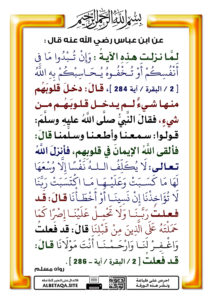 بسم الله الرحمن الرحيم
عن ابن عباس رضي الله عنه قال :
لمَّا نزلت هذه الآية : وَإِنْ تُبْدُوا مَا فِي
أَنْفُسِكُمْ أَوْ تُخْفُوهُ يُحَاسِبْكُمْ بِهِ اللَّهُ
[ 2 / البقرة / آية 284 ] ، قال : دخل قلوبَهم
منها شيءٌ لم يدخل قلوبَهم من
شيءٍ ، فقال النبيُّ صلَّى اللهُ عليه وسلَّم :
قولوا : سمعنا وأطعنا وسلَّمنا قال :
فألقى اللهُ الإيمانَ في قلوبِهم ، فأنزل اللهُ
تعالَى : لَا يُكَلِّفُ اللَّهُ نَفْسًا إِلَّا وُسْعَهَا
لَهَا مَا كَسَبَتْ وَعَلَيْهَا مَا اكْتَسَبَتْ رَبَّنَا
لَا تُؤَاخِذْنَا إِنْ نَسِينَا أَوْ أَخْطَأْنَا قال : قد
فعلت رَبَّنَا وَلَا تَحْمِلْ عَلَيْنَا إِصْرًا كَمَا
حَمَلْتَهُ عَلَى الَّذِينَ مِنْ قَبْلِنَا قال : قد فعلت
وَاغْفِرْ لَنَا وَارْحَمْنَا أَنْتَ مَوْلَانَا قال
قد فعلت [ 2 / البقرة / آية - 286 ] .
رواه مسلم
احرص على طباعة
ونشر هذه الورقة
ALBETAQA.SITE